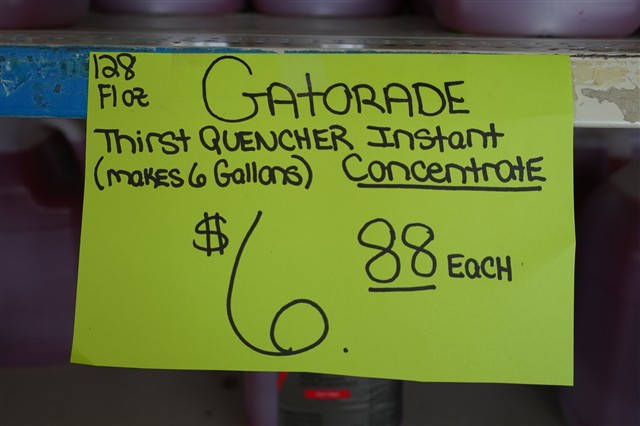 128
Fl oz
GATORADE
Thirst QUENCHER Instant
(makes 6 Gallons) Concentrate
$6.88 Each